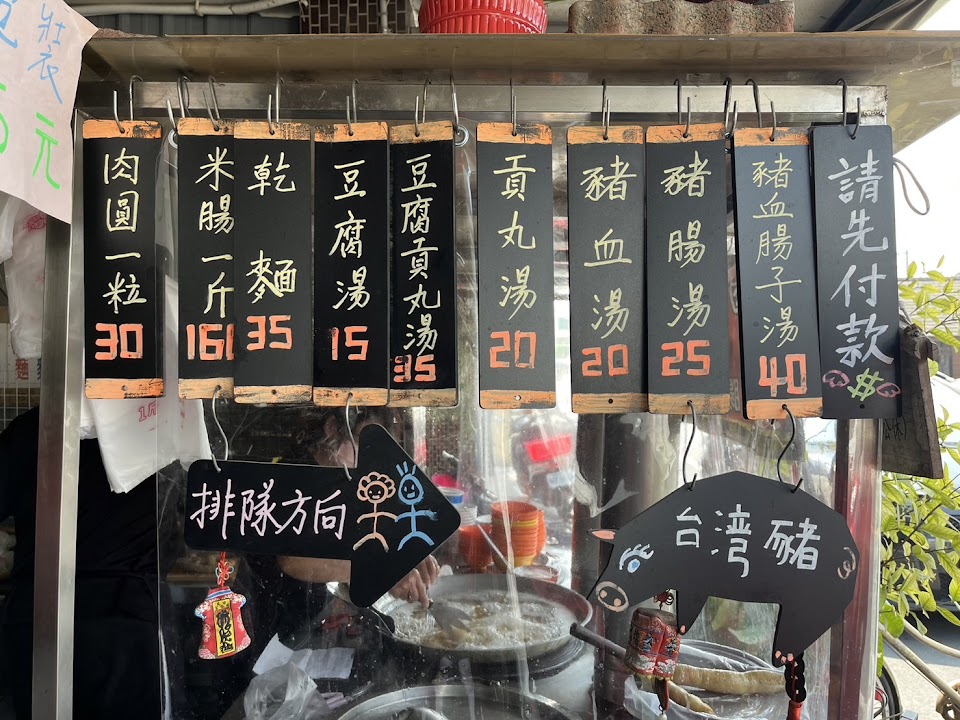 壯衣
元
肉圓一粒
30
米腸一斤
160
乾麵
35
豆腐湯
15
豆腐貢丸湯
35
貢丸湯
20
豬血湯
20
豬腸湯
25
豬血腸子湯
40
請先付款
排隊方向
台灣豬